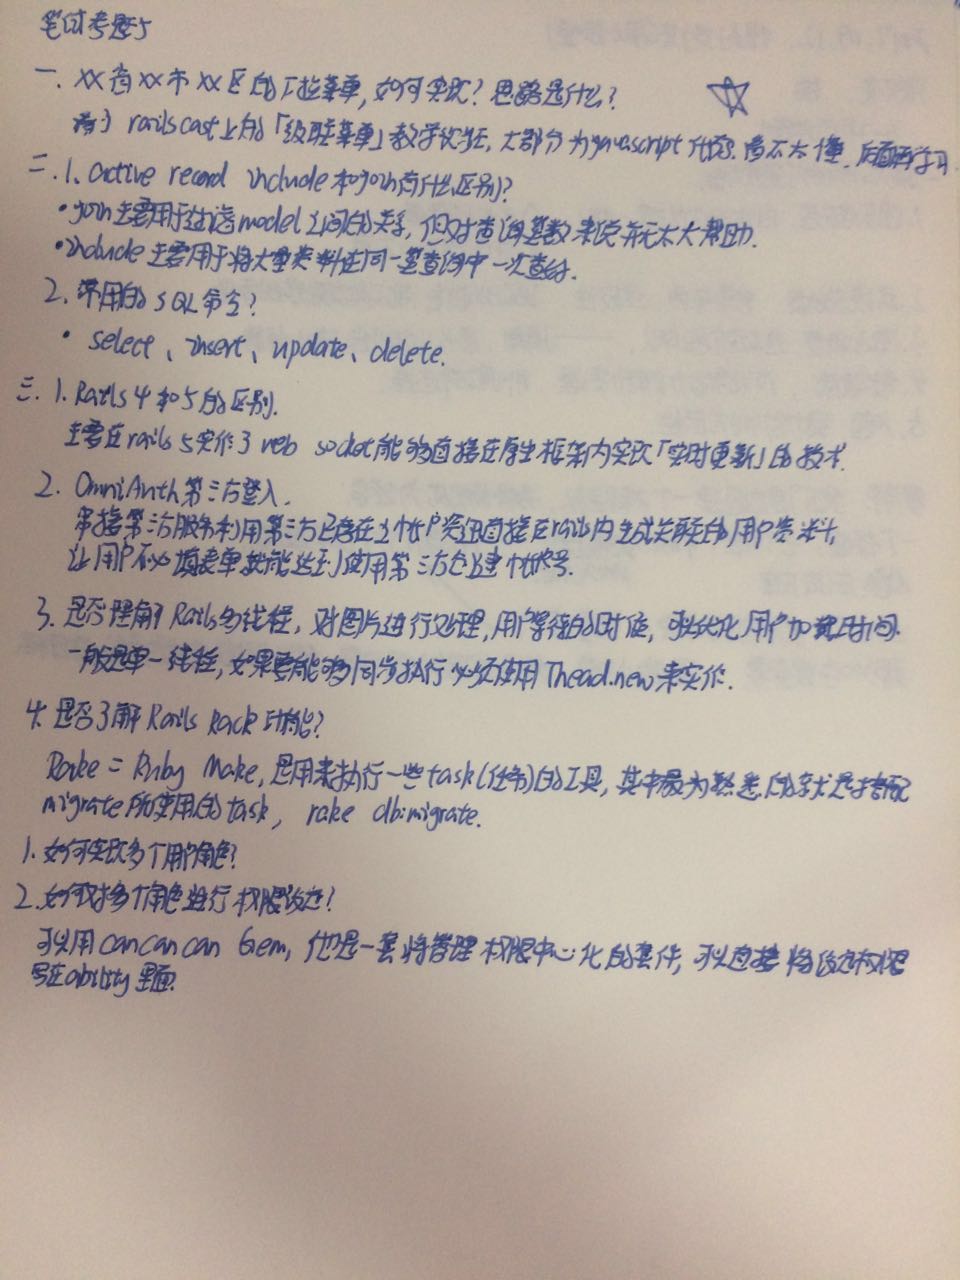 笔试考题5
一. XX省XX市XX区的下拉菜单, 如何实现? 思路是什么?
看了railscast上的「级联菜单」教学影片, 大部分为javascript代码. 看不太懂. 后面再学习
二. 1. active record include和join有什么区别?
• join主要用于过滤model之间的关系, 但对查询笔数来说并无太大帮助.
• include主要用于将大量资料在同一笔查询中一次查出.
2. 常用的SQL命令?
• select、insert、update、delete.
三. 1. Rails 4 和 5 的区别.
主要在rails 5实作了web socket能够直接在原生框架内实现「实时更新」的技术.
2. OmniAuth第三方登入.
串接第三方服务利用第三方已存在之帐户资讯直接在rails内生成关联的用户资料,
让用户不必填表单就能达到使用第三方创建帐号.
3. 是否理解Rails多线程, 对图片进行处理, 用户等待的时候, 可以优化用户加载时间.
一般是单一线程, 如果要能够同步执行必须使用Thead.new来实作.
4. 是否了解Rails Rack功能?
Rake = Ruby Make, 是用来执行一些task(任务)的工具, 其中最为熟悉的就是搭配
migrate所使用的task, rake db:migrate.
1. 如何实现多个用户角色?
2. 如何对多个角色进行权限设定?
可以用cancancan Gem, 他是一套将管理权限中心化的套件, 可以直接将设定权限
写在ability里面.